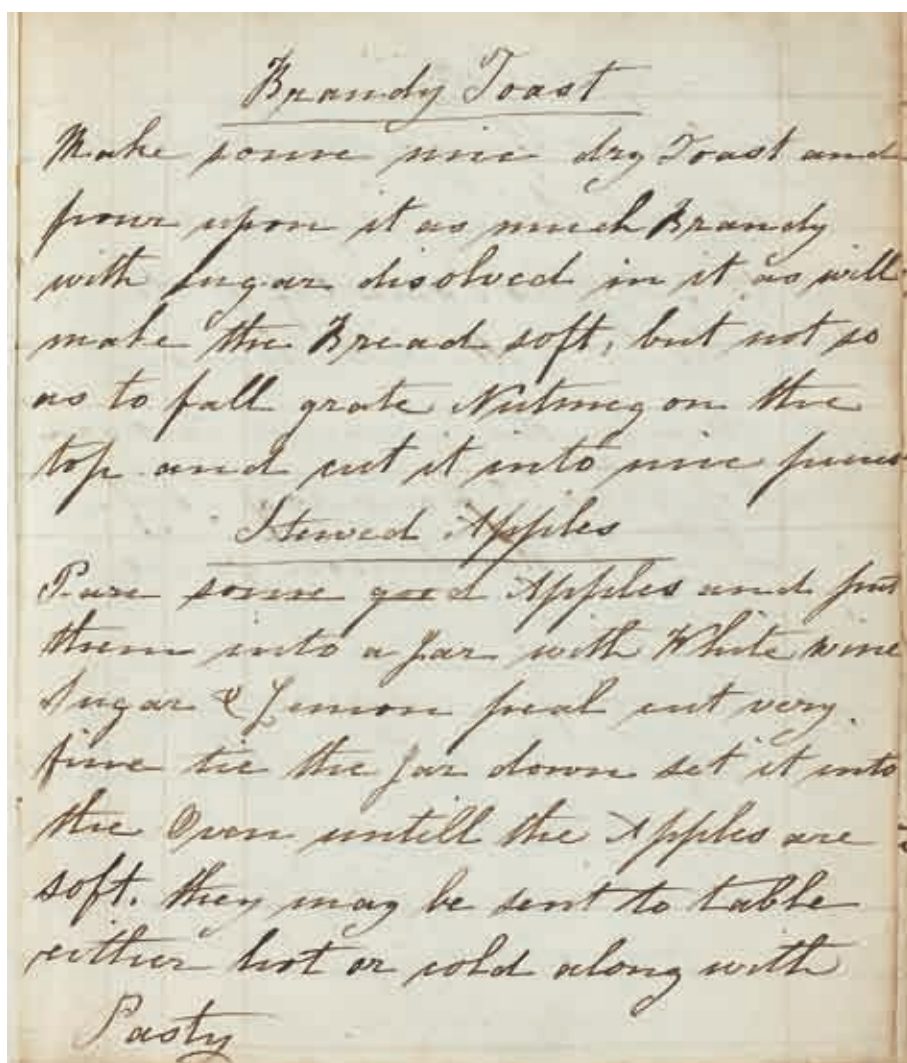 Brandy Toast
Make some nice dry Toast and
pour upon it as much Brandy
with sugar disolved in it as will
make the Bread soft, but not so
as to fall grate Nutmeg on the
top and cut it into nice pieces
Stewed Apples
Pare some good Apples and put
them into a Jar with White wine
Sugar & Lemon peal cut very
fine tie the Jar down set it into
the Oven untill the Apples are
soft. they may be sent to table
either hot or cold along with
Pasty